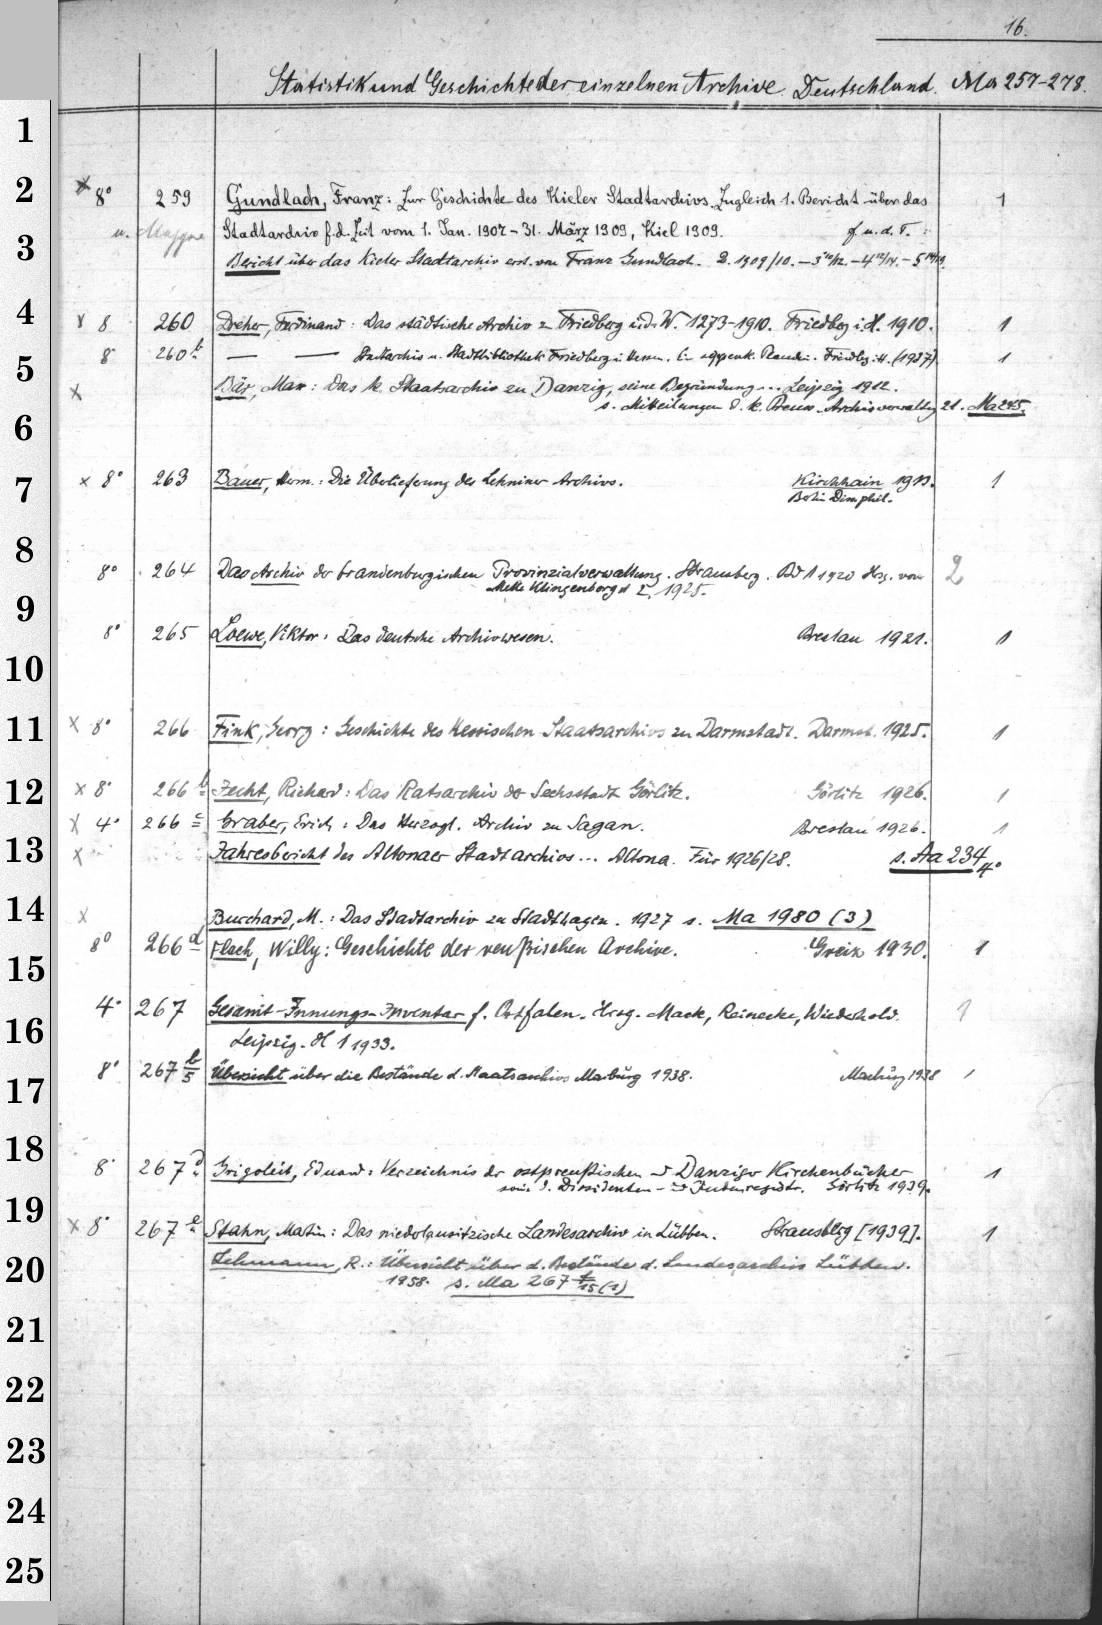 16.
Statistik und Geschichte der einzelnen Archive. Deutschland. Ma 257-278.
1
2
3
4
5
6
7
8
9
10
11
12
13
14
15
16
17
18
19
20
21
22
23
24
25
x 8° 259 Gundlach, Franz: Zur Geschichte des Kieler Stadtarchivs. Zugleich 1. Bericht über das 1
u. Mappe Stadtarchiv f. d. Zeit vom 1. Jan. 1907 - 31. März 1909, Kiel 1909. f u. d. T.:
Bericht über das Kieler Stadtarchiv erst. von Franz Gundlach. 2. 1909/10. - 3 10/12. - 4 12/14. - 5 14/19.
x 8 260 Dreher, Ferdinand: Das städtische Archiv z. Friedberg i. d. W. 1273-1910. Friedbg i. H. 1910. 1
8 260 b — — Stadtarchiv u. Stadtbibliothek Friedberg i. Hessen. Friedbg. i. H. (1937) 1
x Bär, Max: Das k. Staatsarchiv zu Danzig, seine Begründung... Leipzig 1912.
s. Mitteilungen d. k. Preuss. Archivverwaltg 21. Ma 245.
x 8° 263 Bauer, Herm.: Die Überlieferung des Lehniner Archivs. Kirchhain 1913. 1
Berlin Diss. phil.
8° 264 Das Archiv der brandenburgischen Provinzialverwaltung. Strausberg. Bd 1 1920 Hrsg. von 2
Melle Klinkenborg 2, 1925.
8° 265 Loewe, Viktor: Das deutsche Archivwesen. Breslau 1921. 1
x 8° 266 Fink, Georg: Geschichte des Hessischen Staatsarchivs zu Darmstadt. Darmst. 1925. 1
x 8° 266 b Jecht, Richard: Das Ratsarchiv der Sechsstadt Görlitz. Görlitz 1926. 1
x 4° 266 c Graber, Erich: Das Herzogl. Archiv zu Sagan. Breslau 1926. 1
x Jahresbericht des Altonaer Stadtarchivs... Altona. Für 1926/28. s. Aa 234 4°
x Burchard, M.: Das Stadtarchiv zu Stadthagen. 1927 s. Ma 1980 (3)
8° 266 d Flach, Willy: Geschichte der reußischen Archive. Greiz 1930. 1
4° 267 Gesamt-Innungs-Inventar f. Ostfalen. Hrsg. Mack, Reinecke, Wiederhold. 1
Leipzig. H 1 1933.
8° 267 b/5 Übersicht über die Bestände d. Staatsarchivs Marburg 1938. Marburg 1938 1
8° 267 d Grigoleit, Eduard: Verzeichnis der ostpreußischen u. Danziger Kirchenbücher 1
sowie d. Dissidenten- u. Judenregister. Görlitz 1939.
x 8° 267 e Stahn, Martin: Das niederlausitzische Landesarchiv in Lübben. Strausbg [1939]. 1
Lehmann, R.: Übersicht über d. Bestände d. Landesarchivs Lübben.
1958. s. Ma 267 f/15 (1)